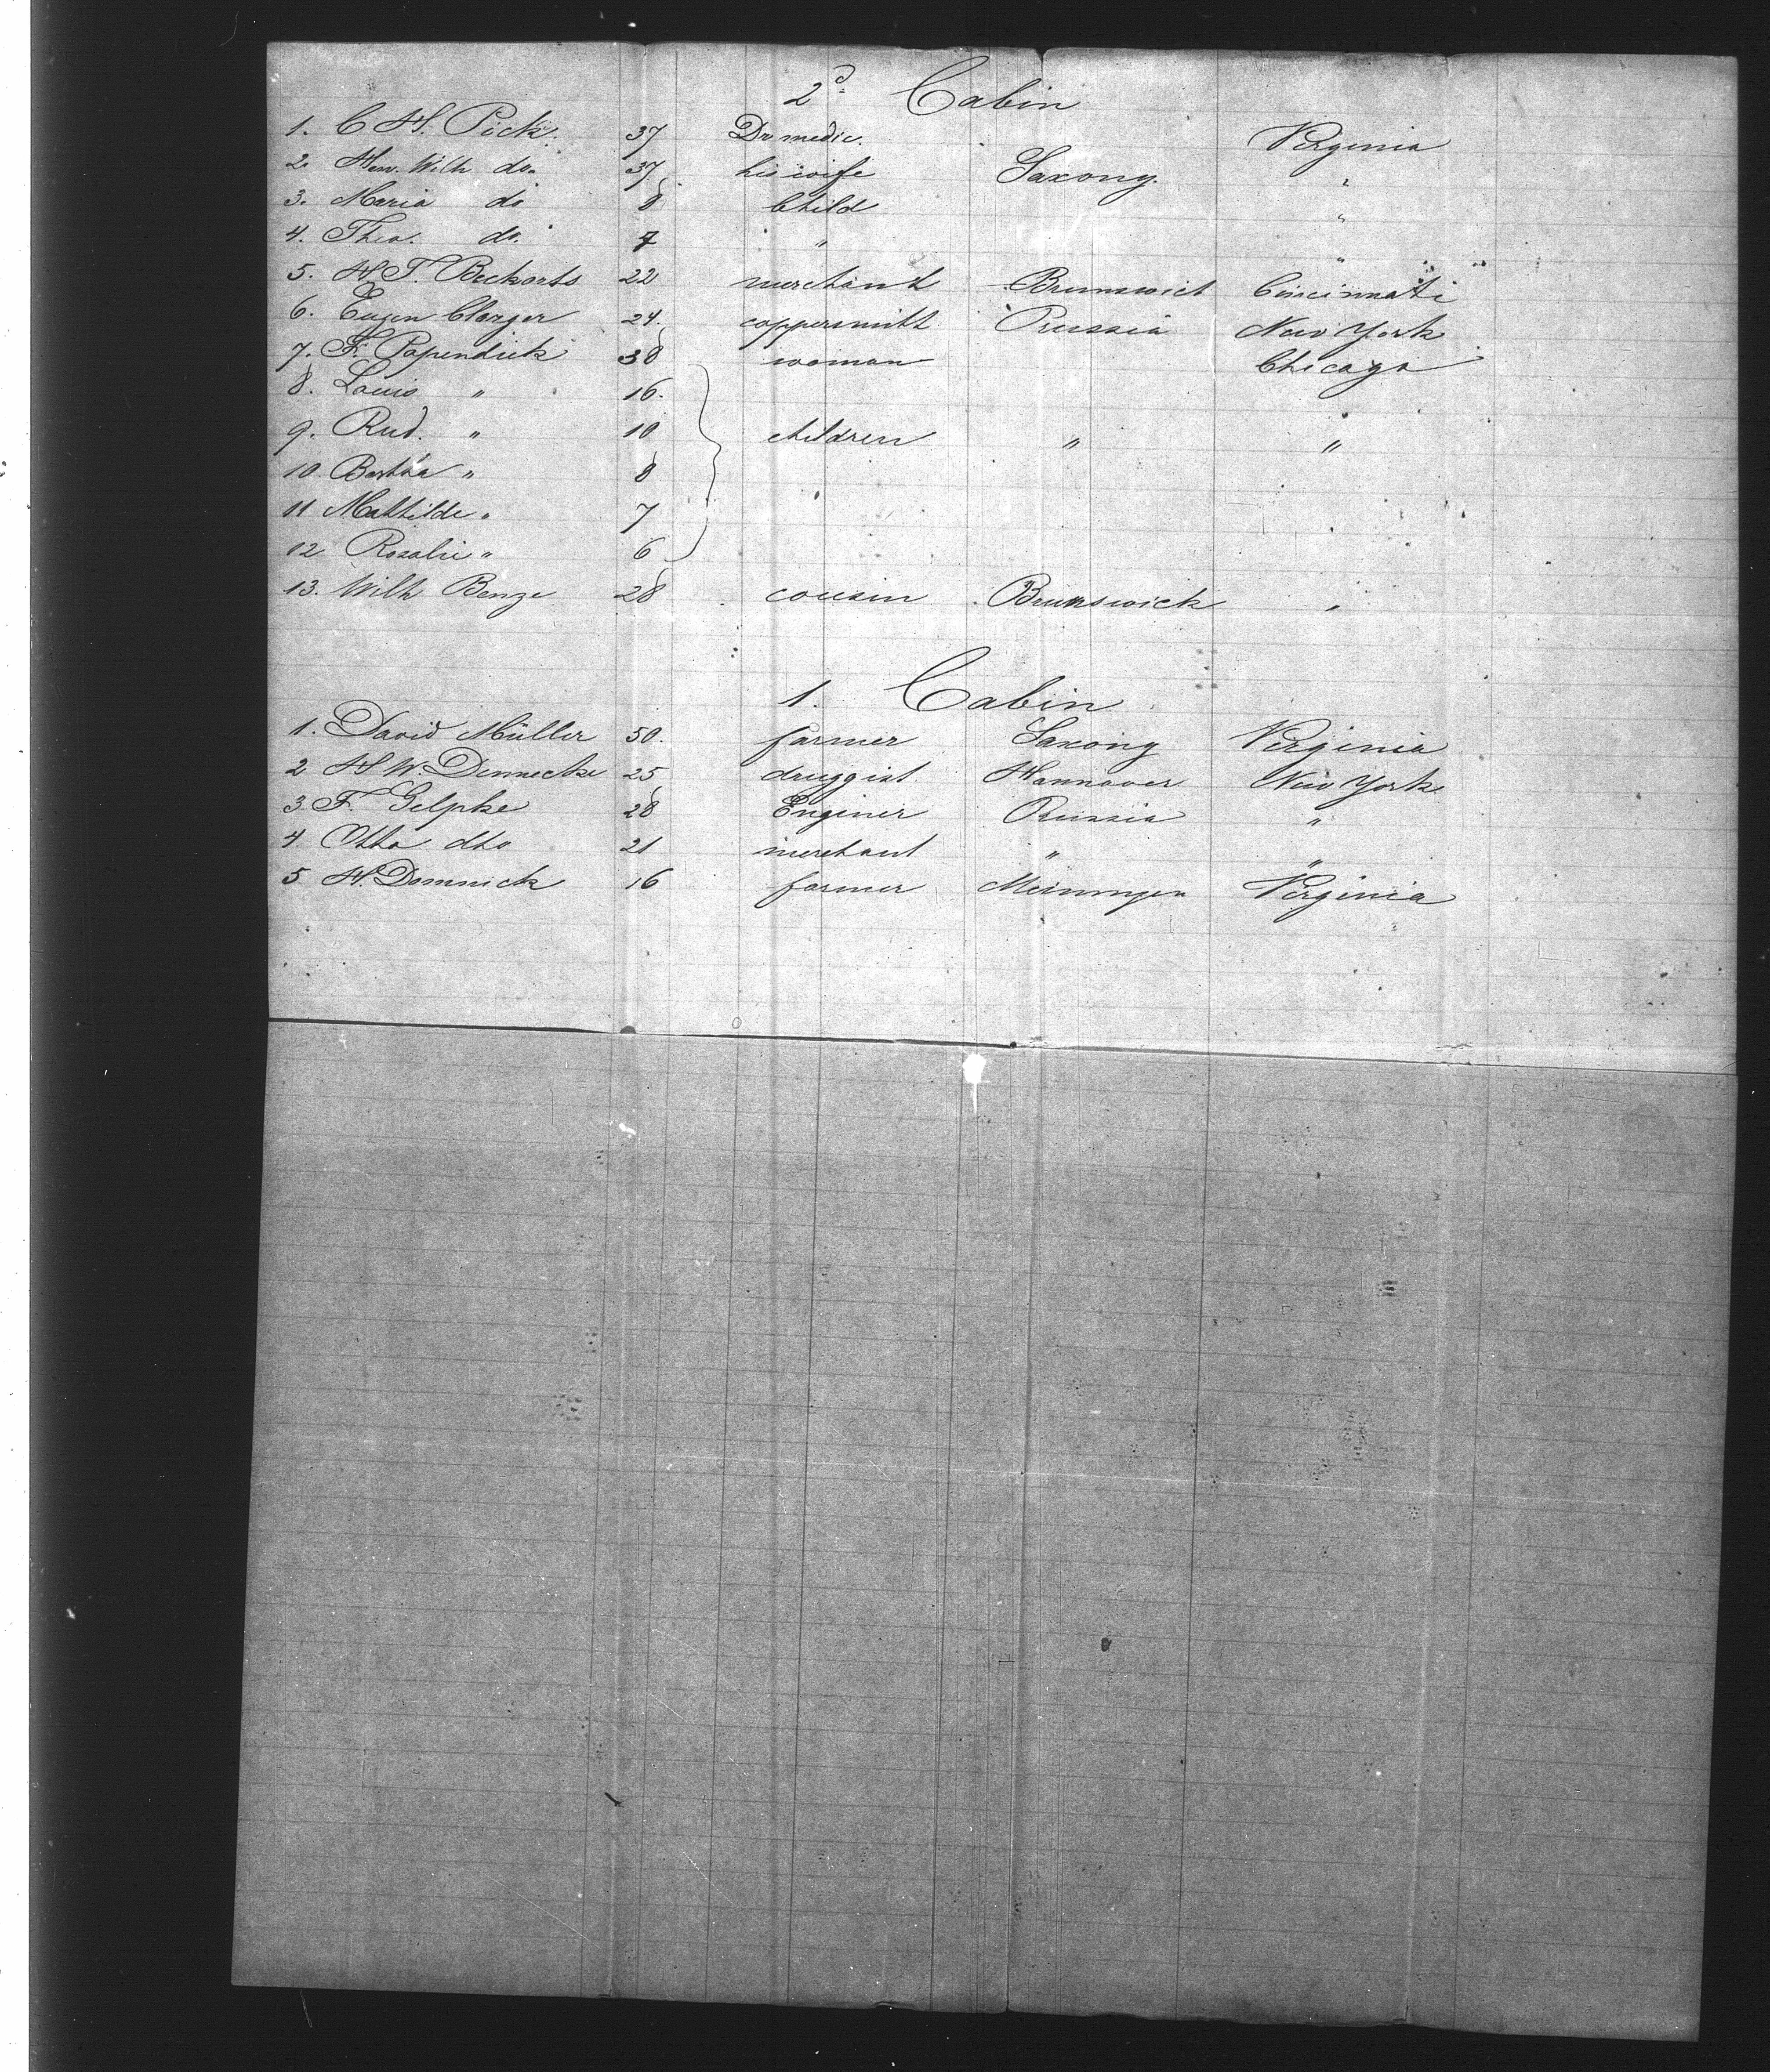 2d Cabin
1. C H. Pick. 37 Dr medic. Virginia
2. Hen. Wilh do. 37 his wife Saxony "
3. Maria do 8 Child "
4. Theo. do. 7 " "
5. H T. Beckarts 22 merchant Brunswick Cincinnati
6. Eugen Clarger 24. coppersmith Prussia New York
7. F. Papendick 38 woman Chicago
8. Louis " 16.
9. Rud. " 10 children " "
10. Bertha " 8
11 Mathilde " 7
12 Rosalie " 6
13. Wilh Benze 28 cousin Brunswick "
1. Cabin
1. David Müller 50. farmer Saxony Virginia
2 H W. Dennecke 25 druggist Hannover New York
3 F. Gelpke 28 Enginer Prussia "
4 Otto dto 21 merchant " "
5 H. Domnick 16 farmer Meiningen Virginia